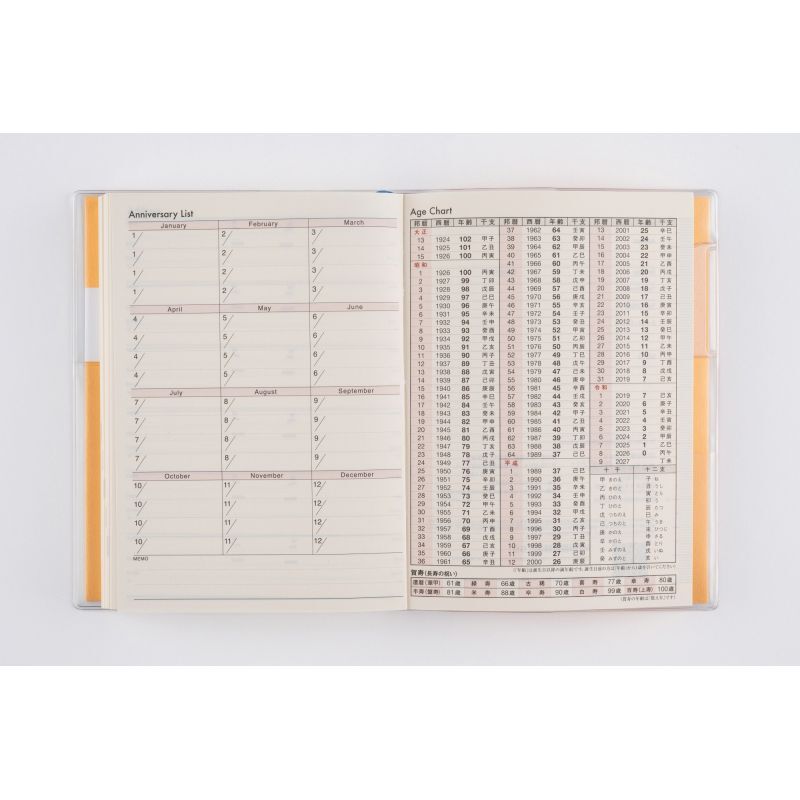 Anniversary List
January February March
1/ 2/ 3/
1/ 2/ 3/
1/ 2/ 3/
1/ 2/ 3/
April May June
4/ 5/ 6/
4/ 5/ 6/
4/ 5/ 6/
4/ 5/ 6/
July August September
7/ 8/ 9/
7/ 8/ 9/
7/ 8/ 9/
7/ 8/ 9/
October November December
10/ 11/ 12/
10/ 11/ 12/
10/ 11/ 12/
10/ 11/ 12/
MEMO
Age Chart
邦暦 西暦 年齢 干支
大正
13 1924 102 甲子
14 1925 101 乙丑
15 1926 100 丙寅
昭和
1 1926 100 丙寅
2 1927 99 丁卯
3 1928 98 戊辰
4 1929 97 己巳
5 1930 96 庚午
6 1931 95 辛未
7 1932 94 壬申
8 1933 93 癸酉
9 1934 92 甲戌
10 1935 91 乙亥
11 1936 90 丙子
12 1937 89 丁丑
13 1938 88 戊寅
14 1939 87 己卯
15 1940 86 庚辰
16 1941 85 辛巳
17 1942 84 壬午
18 1943 83 癸未
19 1944 82 甲申
20 1945 81 乙酉
21 1946 80 丙戌
22 1947 79 丁亥
23 1948 78 戊子
24 1949 77 己丑
25 1950 76 庚寅
26 1951 75 辛卯
27 1952 74 壬辰
28 1953 73 癸巳
29 1954 72 甲午
30 1955 71 乙未
31 1956 70 丙申
32 1957 69 丁酉
33 1958 68 戊戌
34 1959 67 己亥
35 1960 66 庚子
36 1961 65 辛丑
邦暦 西暦 年齢 干支
37 1962 64 壬寅
38 1963 63 癸卯
39 1964 62 甲辰
40 1965 61 乙巳
41 1966 60 丙午
42 1967 59 丁未
43 1968 58 戊申
44 1969 57 己酉
45 1970 56 庚戌
46 1971 55 辛亥
47 1972 54 壬子
48 1973 53 癸丑
49 1974 52 甲寅
50 1975 51 乙卯
51 1976 50 丙辰
52 1977 49 丁巳
53 1978 48 戊午
54 1979 47 己未
55 1980 46 庚申
56 1981 45 辛酉
57 1982 44 壬戌
58 1983 43 癸亥
59 1984 42 甲子
60 1985 41 乙丑
61 1986 40 丙寅
62 1987 39 丁卯
63 1988 38 戊辰
64 1989 37 己巳
平成
1 1989 37 己巳
2 1990 36 庚午
3 1991 35 辛未
4 1992 34 壬申
5 1993 33 癸酉
6 1994 32 甲戌
7 1995 31 乙亥
8 1996 30 丙子
9 1997 29 丁丑
10 1998 28 戊寅
11 1999 27 己卯
12 2000 26 庚辰
邦暦 西暦 年齢 干支
13 2001 25 辛巳
14 2002 24 壬午
15 2003 23 癸未
16 2004 22 甲申
17 2005 21 乙酉
18 2006 20 丙戌
19 2007 19 丁亥
20 2008 18 戊子
21 2009 17 己丑
22 2010 16 庚寅
23 2011 15 辛卯
24 2012 14 壬辰
25 2013 13 癸巳
26 2014 12 甲午
27 2015 11 乙未
28 2016 10 丙申
29 2017 9 丁酉
30 2018 8 戊戌
31 2019 7 己亥
令和
1 2019 7 己亥
2 2020 6 庚子
3 2021 5 辛丑
4 2022 4 壬寅
5 2023 3 癸卯
6 2024 2 甲辰
7 2025 1 乙巳
8 2026 0 丙午
9 2027 丁未
十干 十二支
甲 きのえ 子 ね
乙 きのと 丑 うし
丙 ひのえ 寅 とら
丁 ひのと 卯 う
戊 つちのえ 辰 たつ
己 つちのと 巳 み
庚 かのえ 午 うま
辛 かのと 未 ひつじ
壬 みずのえ 申 さる
癸 みずのと 酉 とり
戌 いぬ
亥 い
賀寿(長寿の祝い)
還暦(華甲) 61歳 緑寿 66歳 古稀 70歳 喜寿 77歳 傘寿 80歳
半寿(盤寿) 81歳 米寿 88歳 卒寿 90歳 白寿 99歳 百寿(上寿) 100歳
(賀寿の年齢は「数え年」です)